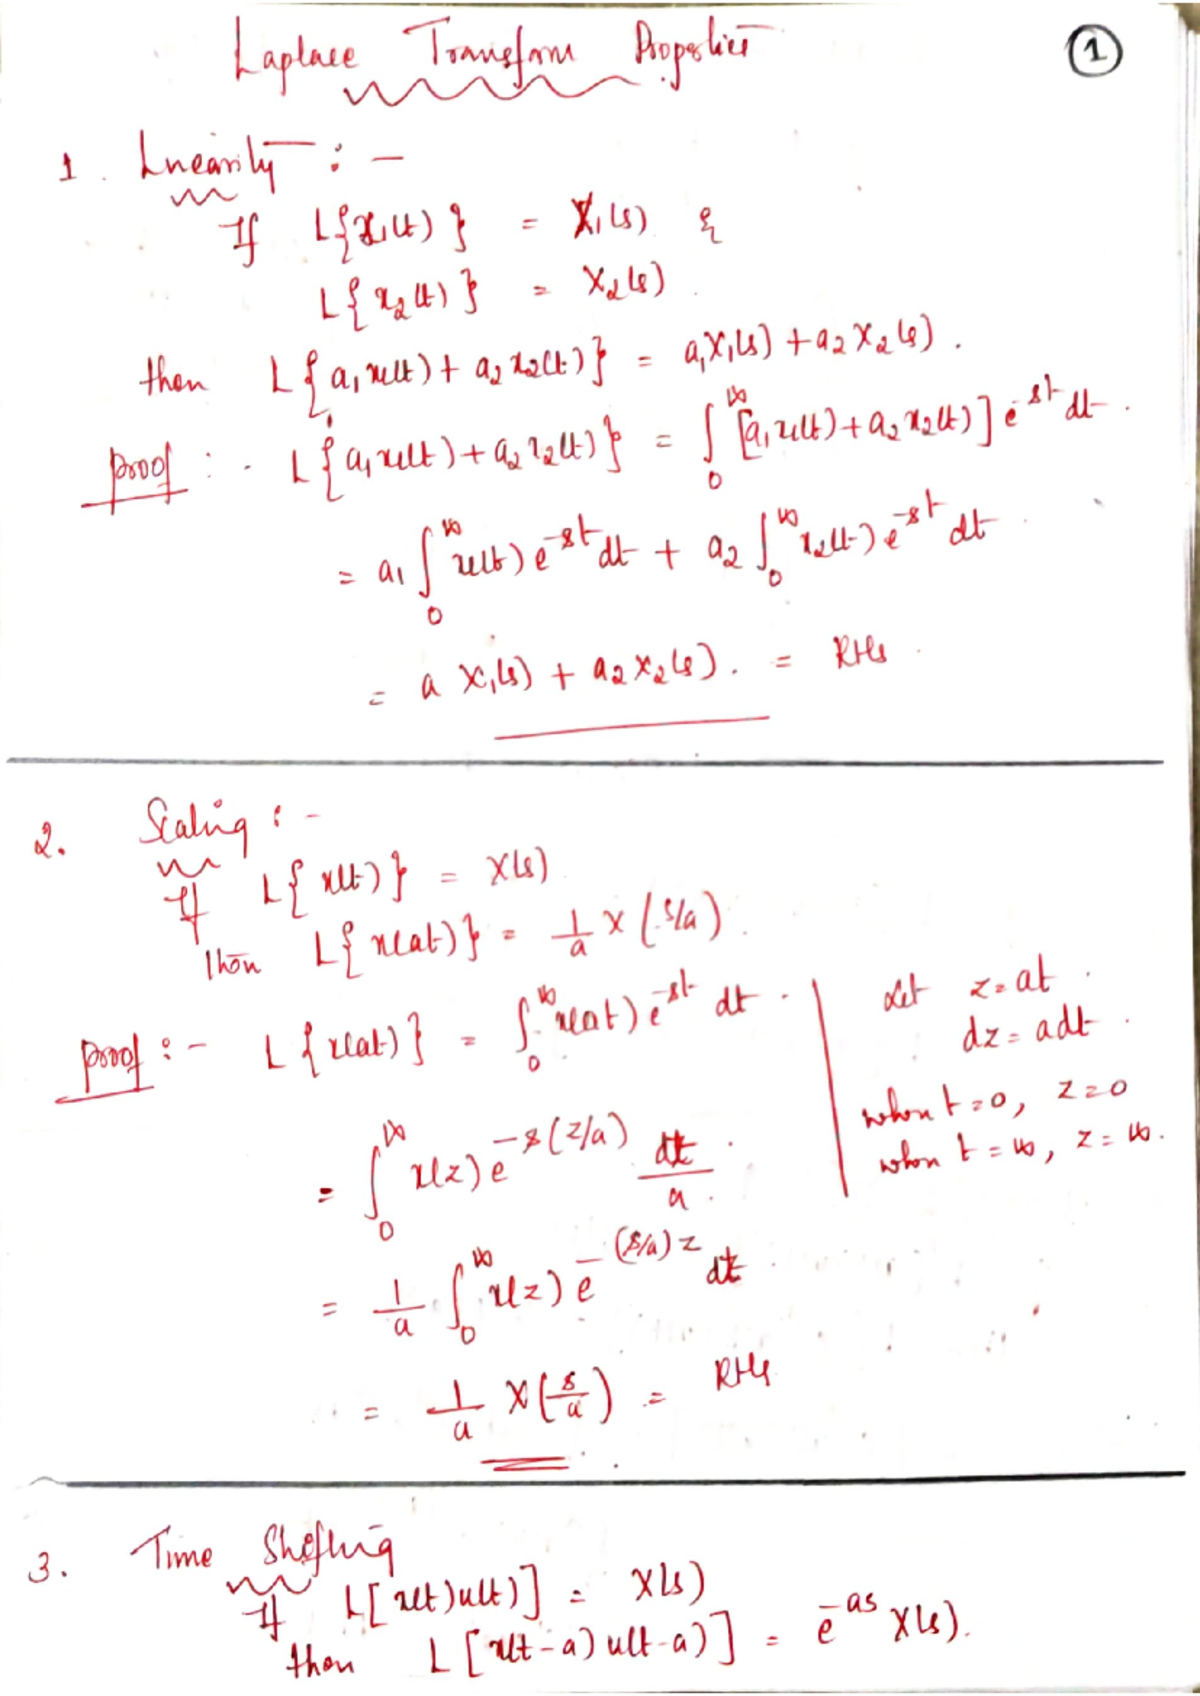 Laplace Transform Properties
1
1. Linearity : -
If L{x₁(t)} = X₁(s) &
L{x₂(t)} = X₂(s)
then L{a₁x₁(t) + a₂x₂(t)} = a₁X₁(s) + a₂X₂(s).
Proof : - L{a₁x₁(t) + a₂x₂(t)} = ∫₀^∞ [a₁x₁(t) + a₂x₂(t)] e^-st dt.
= a₁ ∫₀^∞ x₁(t) e^-st dt + a₂ ∫₀^∞ x₂(t) e^-st dt.
= a X₁(s) + a₂X₂(s). = RHS
2. Scaling : -
If L{x(t)} = X(s)
Then L{x(at)} = 1/a X(s/a).
Proof : - L{x(at)} = ∫₀^∞ x(at) e^-st dt.
Let z = at.
dz = adt.
when t = 0, z = 0
when t = ∞, z = ∞.
= ∫₀^∞ x(z) e^-s(z/a) dt/a.
= 1/a ∫₀^∞ x(z) e^-(s/a)z dt
= 1/a X(s/a) = RHS
3. Time Shifting
If L[x(t)u(t)] = X(s)
then L[x(t-a)u(t-a)] = e^-as X(s).